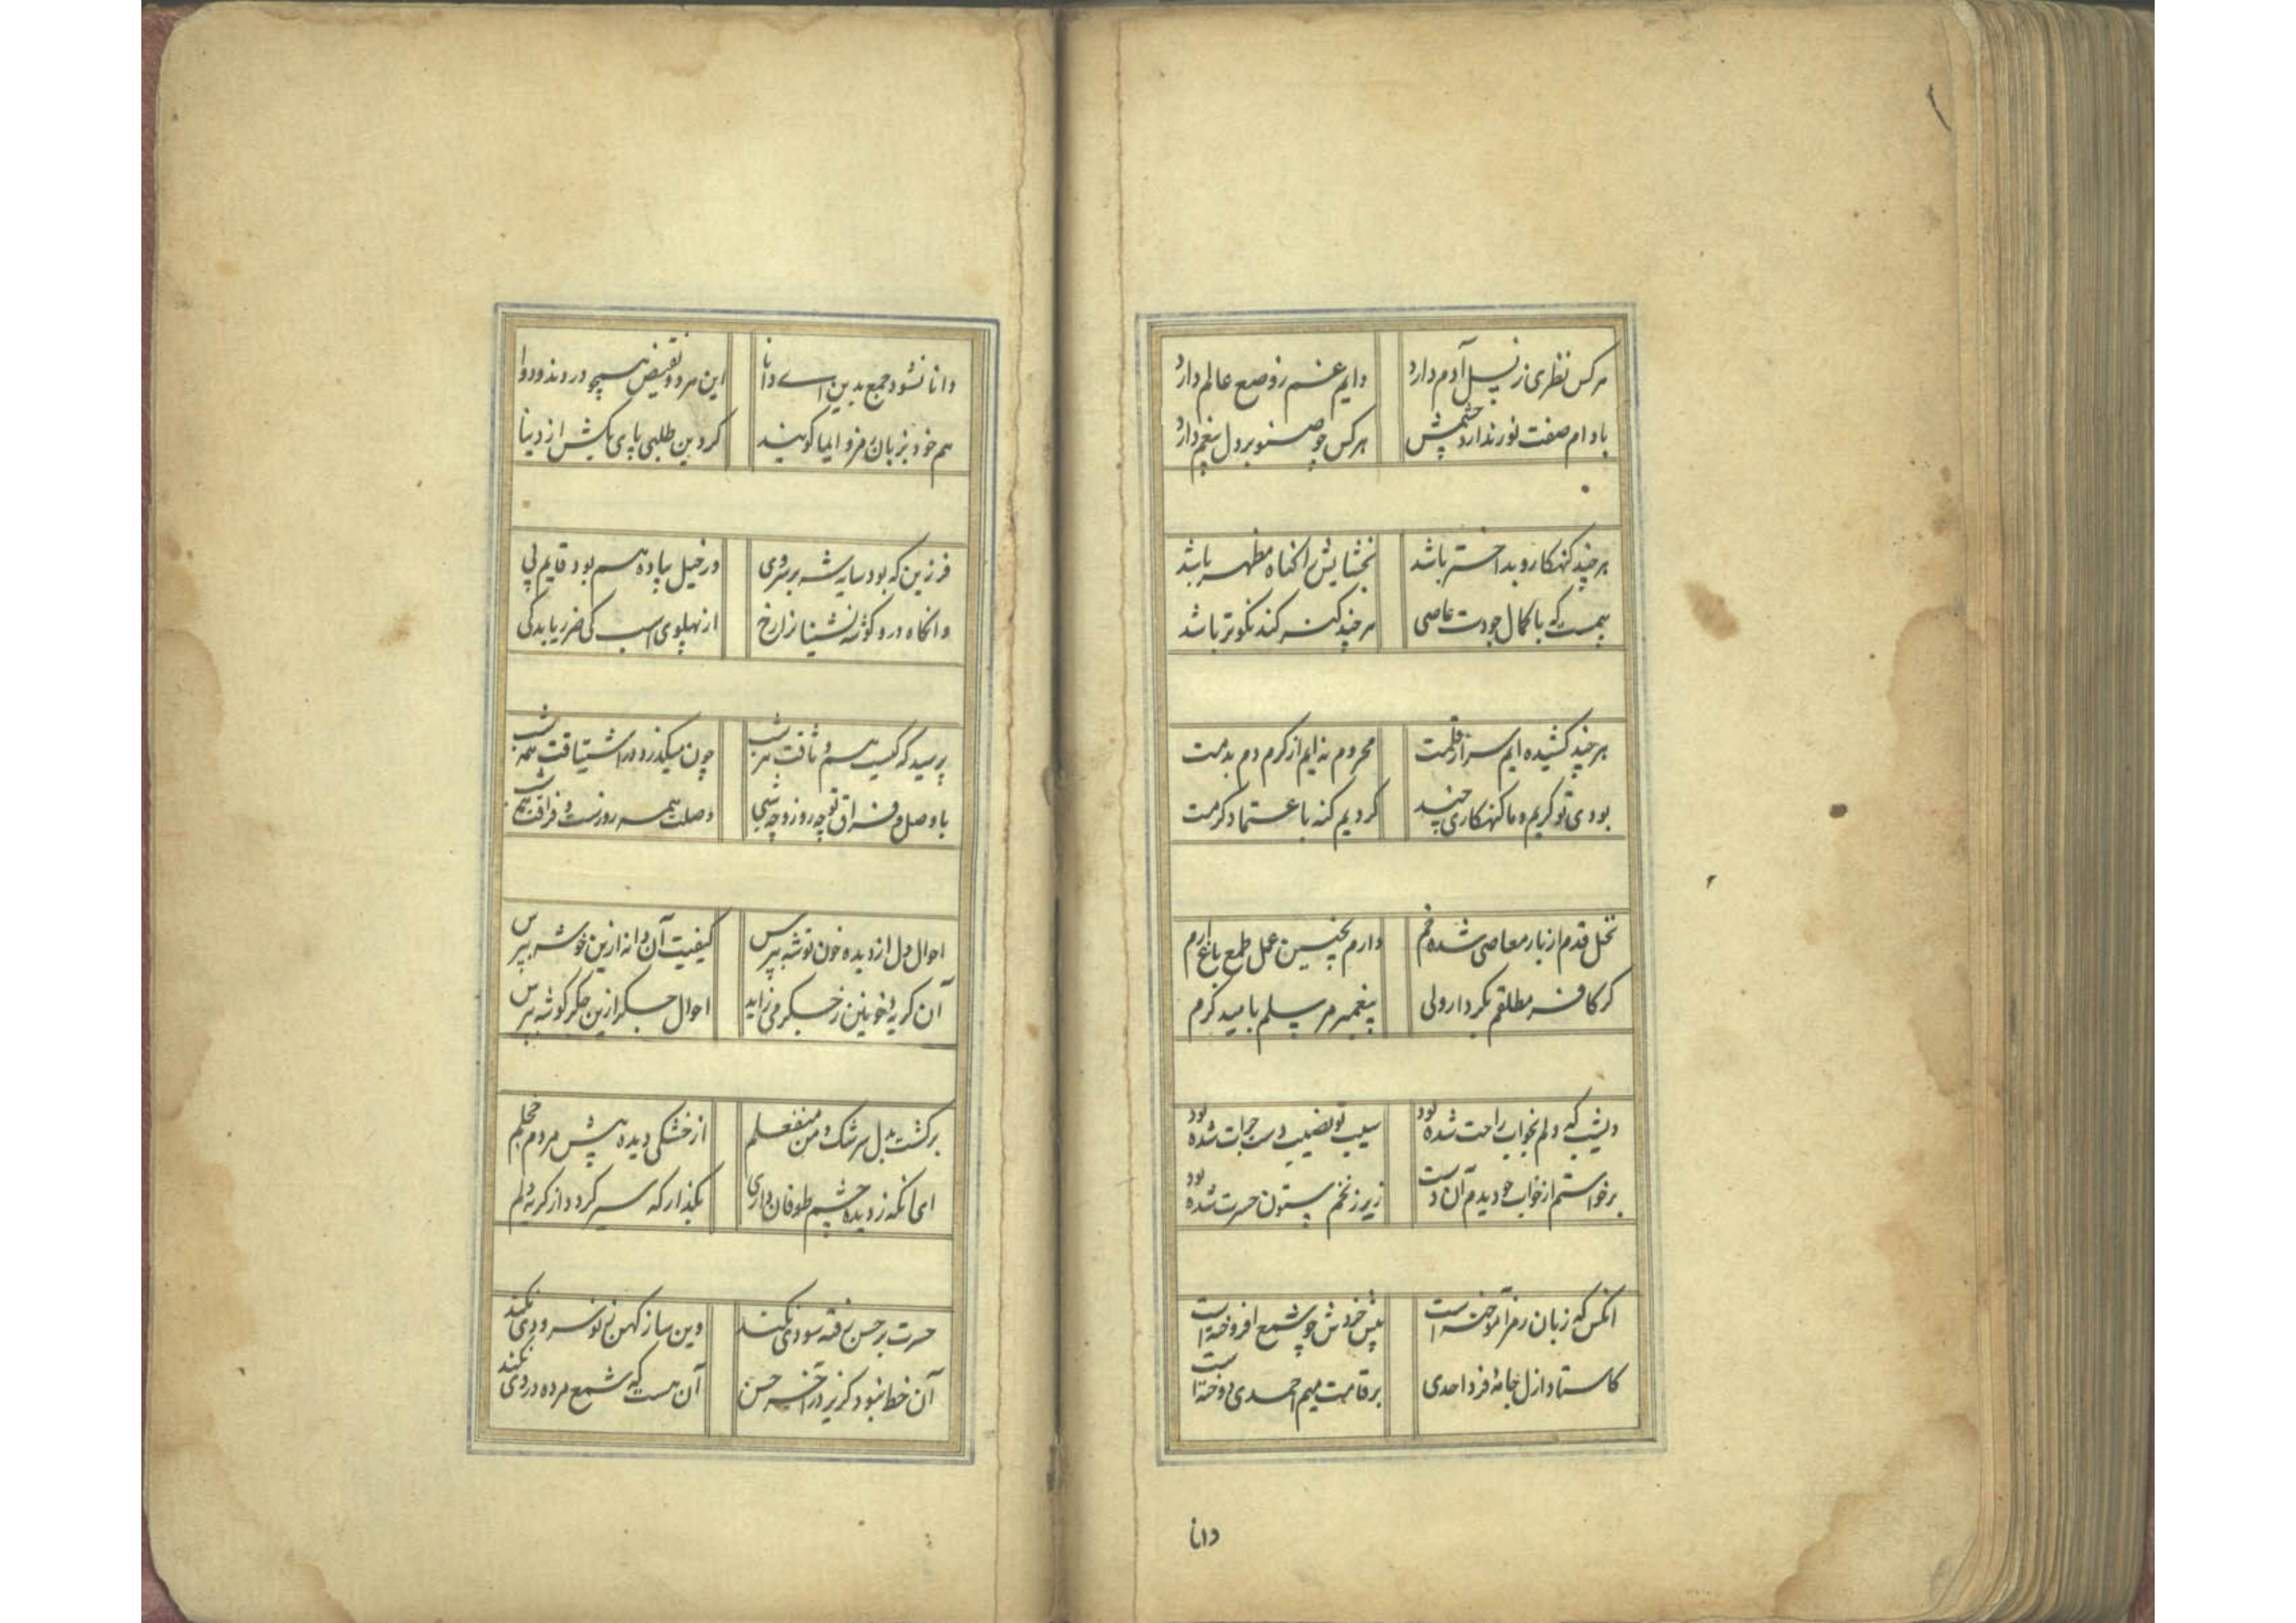 هرکس نظری ز نسل آدم دارد دایم غم روضع عالم دارد
بادام صفت نور ندارد چشمش هرکس چو صنوبر دل بیغم دارد
هرچند کنهکار و بد اختر باشد بخشایش را کناه مظهر باشد
نیست که با کمال جودت عاصی هرچند کنه کند نکوتر باشد
هرچند کشیده ایم سر از قلمت محروم نه ایم از کرم دم بدمت
بودی تو کریم و ما کنهکاری چند کردیم کنه با عتماد کرمت
نخل قدم از بار معاصی شده خم دارم بچنین عمل طمع باغ ارم
کر کافر مطلقم بکردار ولی پیغمبر مرسلم بامید کرم
دیشب که دلم بخواب راحت شده بود سیب تو نصیب دست جرات شده بود
برخواستم از خواب چو دیدم آن دست زیر زنخم ستون حسرت شده بود
انکس که زبان رمز آموخته است پیش خردش چو شمع افروخته است
کاستاد ازل جامهٔ فرد احدی بر قامت میم احمدی دوخته است
دانا
دانا نشود جمع بدین اے دانا این هر دو نقیض هیچ در دند و دوا
هم خود بزبان رمز و ایما کویند کر دین طلبی پای بکش از دینا
فرزین که بود سایه شه بر سر وی در خیل پیاده هم بود قایم پی
وانکاه در و کوشه نشینا نزا رخ از پهلوی اسب کی ضرر یابد کی
پرسید که کیست هم و ثاقت هر شب چون میکذرد در اشتیاقت همه شب
با وصل و فراق تو چه روز و چه شبی وصلت همه روزست و فراقت همه شب
احوال دل از دیده خون توشه بپرس کیفیت آن دانه ازین خوشه بپرس
آن کریهٔ خونین ز جکر می زاید احوال جکر ازین جکر کوشه بپرس
برکشت بدل سرشک و من منفعلم از خشکی دیده پیش مردم خجلم
ای انکه ز دیده چشم طوفان داری بکذار که سیر کردد از کریه دلم
حسرت بر حسن رفته سودی نکند وین ساز کهن نی نو سرودی نکند
آن خط نبود کزیر در آخر حسن آن هست که شمع مرده دودی نکند